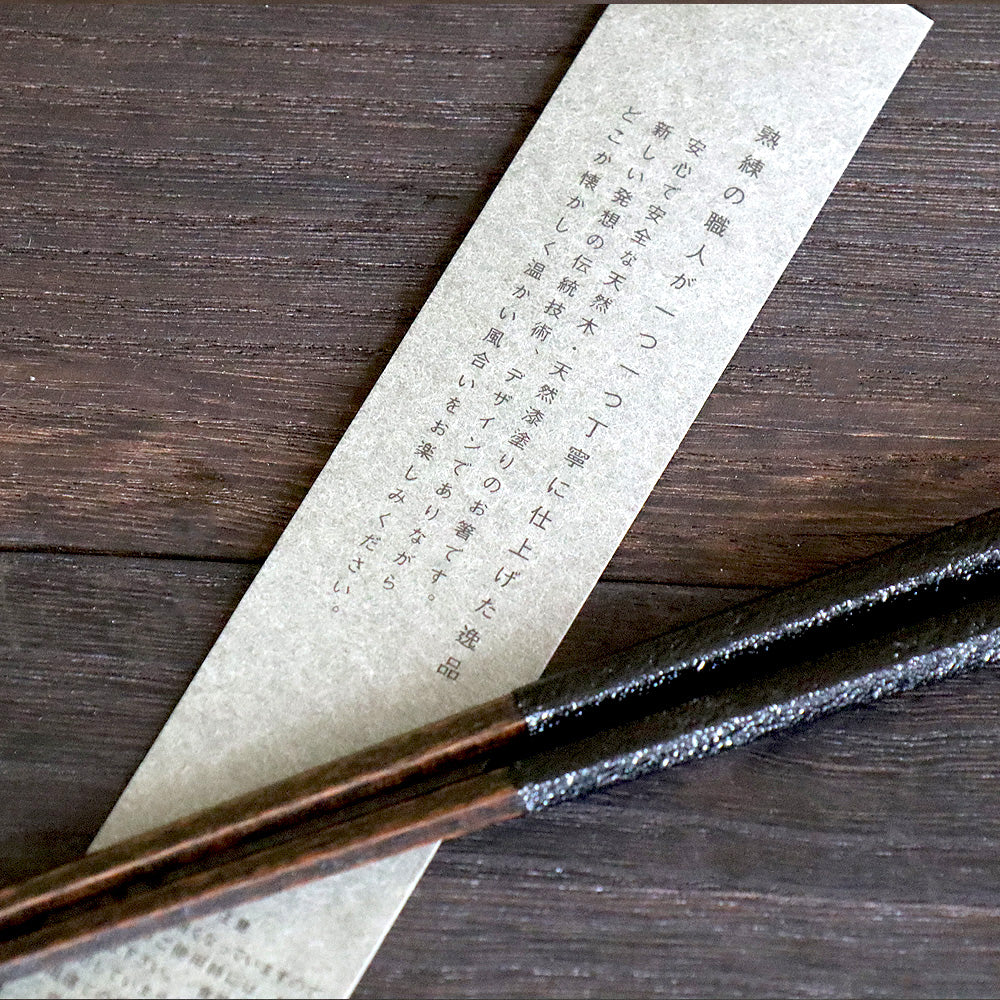 熟練の職人が一つ一つ丁寧に仕上げた逸品
安心で安全な天然木・天然漆塗りのお箸です。
新しい発想の伝統技術、デザインでありながら
どこか懐かしく温かい風合いをお楽しみください。